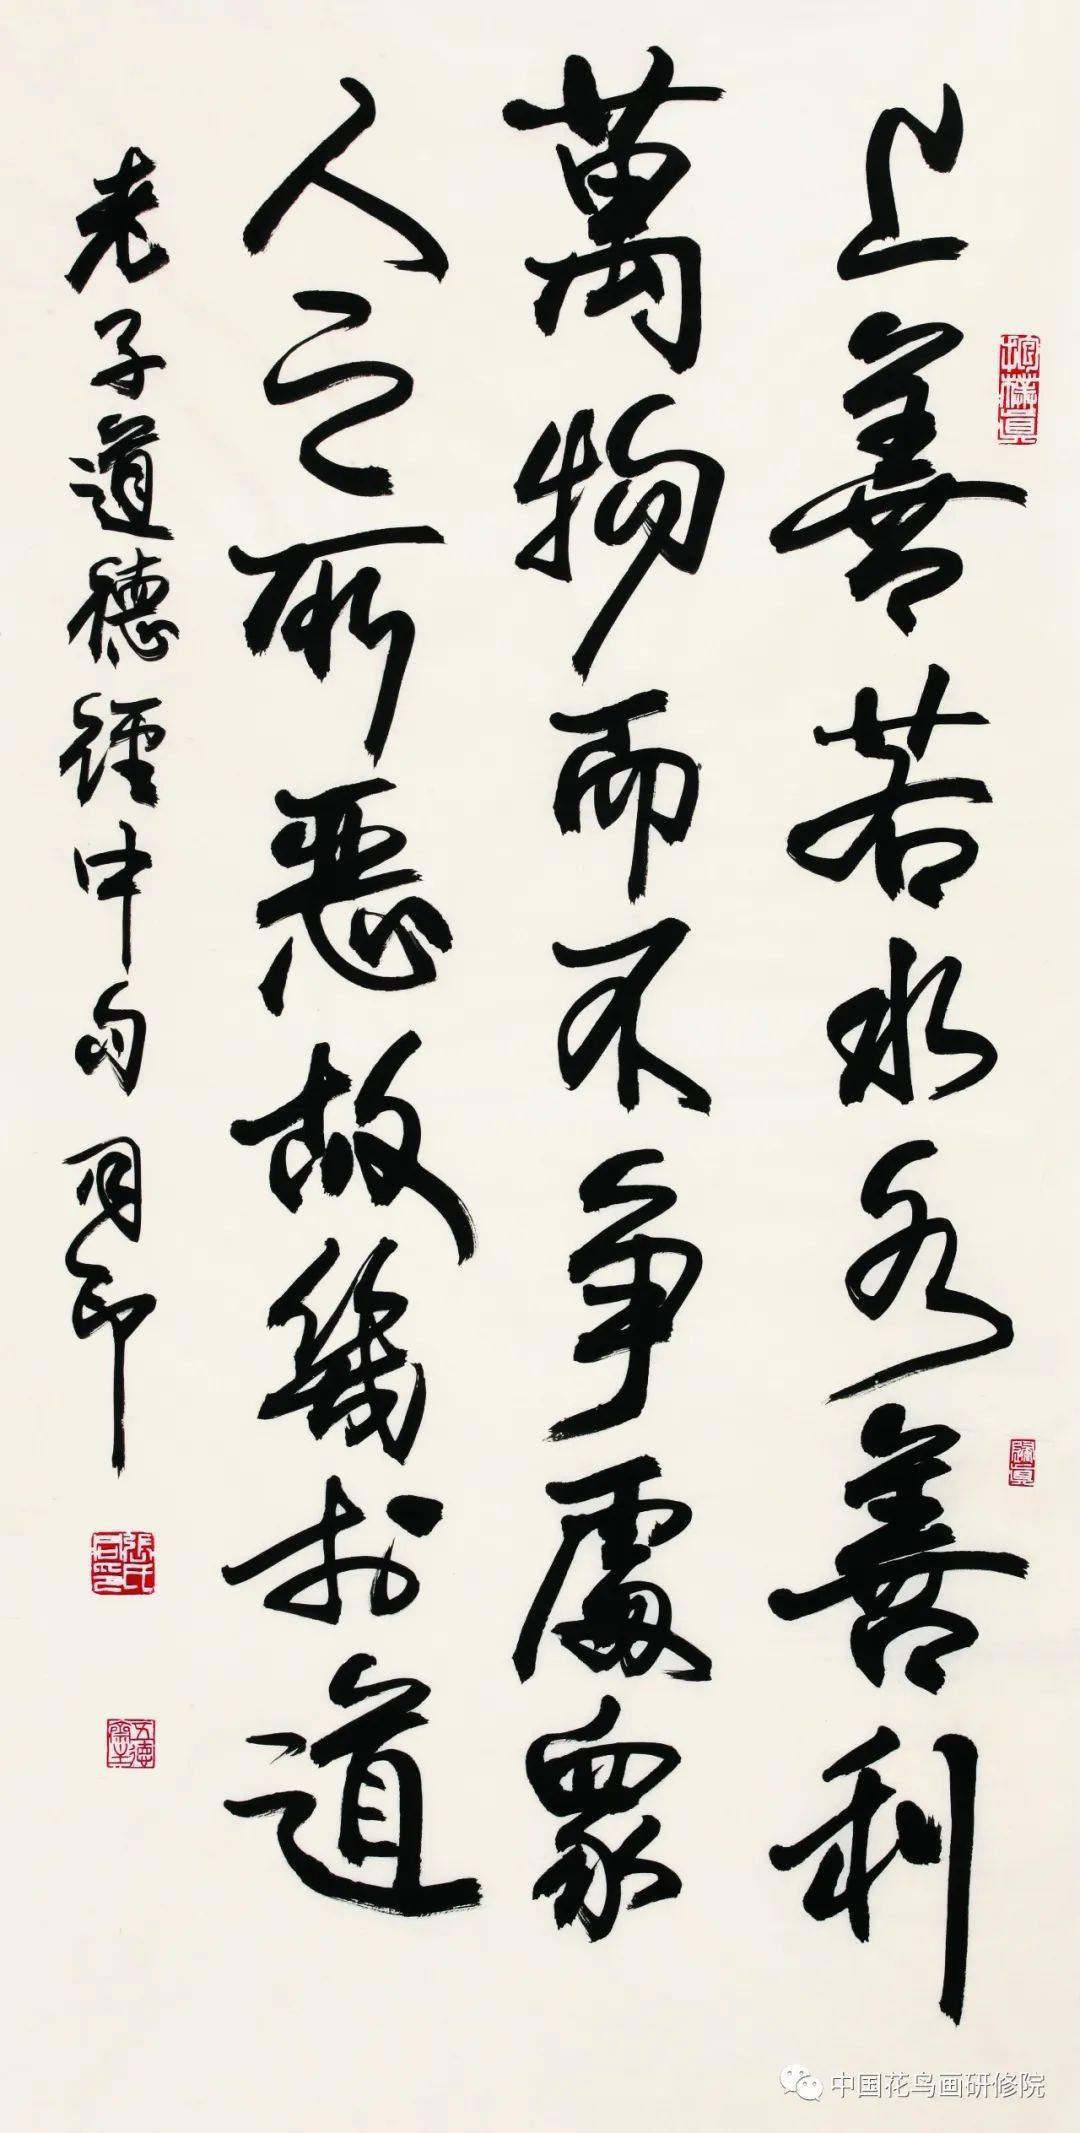 上善若水水善利
萬物而不争處衆
人之所惡故幾於道
老子道德經中句
中国花鸟画研修院